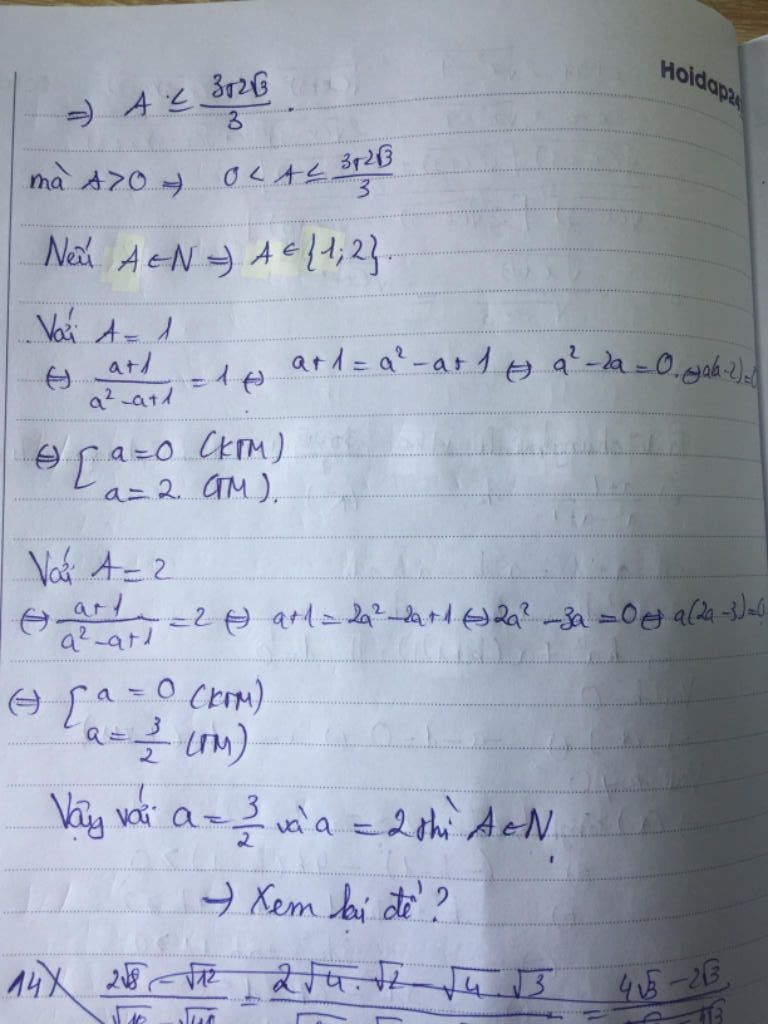 Hoidap24
⇒ A ≤ (3+2√3)/3 .
mà A>0 ⇒ 0 < A ≤ (3+2√3)/3
Nếu A∈N ⇒ A ∈ {1;2}.
Với A = 1
⇔ (a+1)/(a²-a+1) = 1 ⇔ a+1 = a²-a+1 ⇔ a²-2a=0. ⇔ a(a-2)=0
⇔ [ a=0 (KTM)
a=2. (TM).
Với A = 2
⇔ (a+1)/(a²-a+1) = 2 ⇔ a+1 = 2a²-2a+1 ⇔ 2a² -3a =0 ⇔ a(2a-3)=0
⇔ [ a = 0 (KTM)
a = 3/2 (TM)
Vậy với a = 3/2 và a = 2 thì A∈N.
→ Xem lại đề?
14) (2√8 - √12)/ = (2√4.√2 - √4.√3)/ = (4√3 - 2√3)/